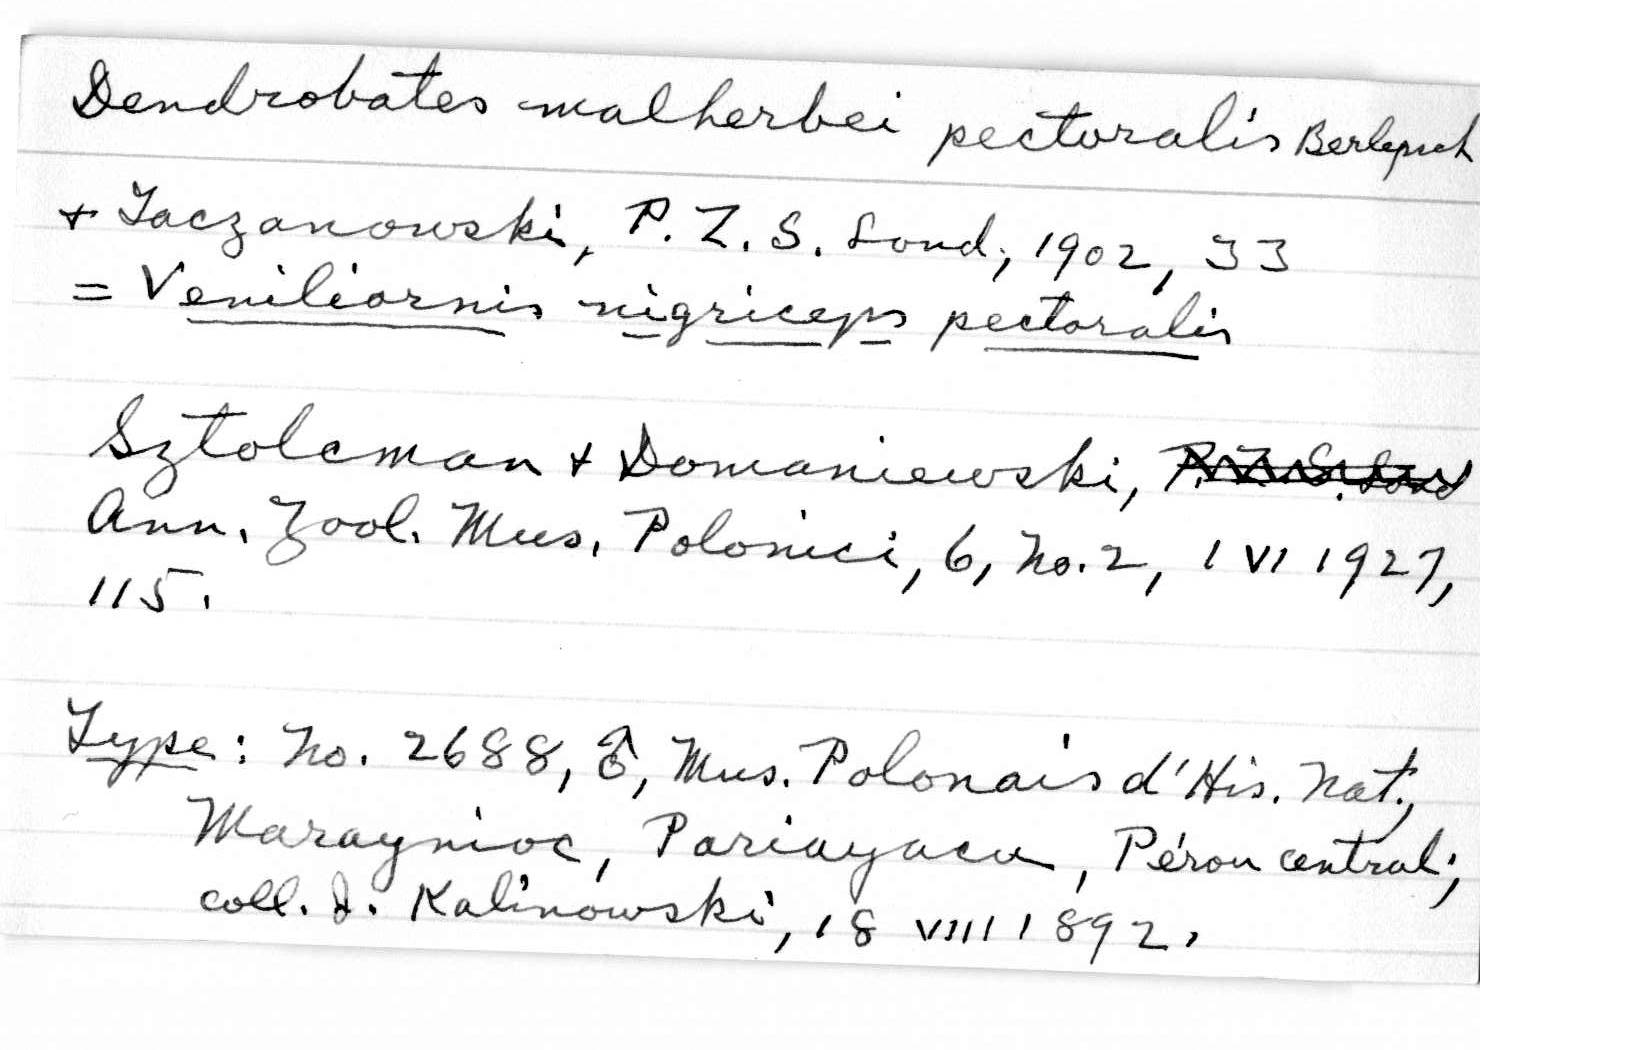 Dendrobates malherbei pectoralis Berlepsch
+ Taczanowski, P. Z. S. Lond, 1902, 33
= Veniliornis nigriceps pectoralis
Sztolcman + Domaniewski, P. Z. S. Lond
Ann. Zool. Mus. Polonici, 6, No. 2, 1 VI 1927,
115.
Type: No. 2688, ♂, Mus. Polonais d'His. Nat.,
Maraynioc, Pariayacu, Pérou central;
coll. J. Kalinowski, 18 VIII 1892.